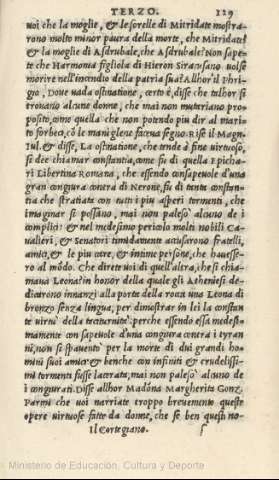 TERZO. 119
uoi che la moglie, & le sorelle di Mitridate mostra-
rono molto minor paura della morte, che Mitridate?
& la moglie di Asdrubale, che Asdrubale? Non sape-
te che Harmonia figliola di Hieron Siracusano uolse
morire nell'incendio della patria sua? Allhor'il Phri-
gio, Doue uada ostinatione, certo è, disse che talhor si
trouano alcune donne, che mai non mutariano pro-
posito, come quella che non potendo piu dir al mari-
to forbeci, cō le mani glene facea segno. Rise il Magn.
Iul. & disse, La ostinatione, che tende à fine uirtuoso,
si dee chiamar constantia, come fu di quella Epichari
ri Libertina Romana, che essendo consapeuole d'una
gran congiura contra di Nerone, fu di tanta constan-
tia che stratiata con tutti i piu asperi tormenti, che
imaginar si possano, mai non palesò alcuno de i
complici: & nel medesimo pericolo molti nobili Ca-
ualieri, & Senatori timidamente accusarono fratelli,
amici, & le piu care, & intime persone, che hauesse-
ro al mōdo. Che direte uoi di quell'altra, che si chia-
maua Leona? in honor della quale gli Atheniesi de-
dicarono innanzi alla porta della rocca una Leona di
bronzo senza lingua, per dimostrar in lei la constan-
te uirtù della taciturnità: perche essendo essa medesi-
mamente consapeuole d'una congiura contra i tyran
ni, non si spauentò per la morte di dui grandi ho-
mini suoi amici: & benche con infiniti & crudelissi-
mi tormenti fusse lacerata, mai non palesò alcuno de
i congiurati. Disse allhor Madōna Margherita Gonz.
Parmi che uoi narriate troppo breuemente queste
opere uirtuose fatte da donne, che se ben questi no-
Il Cortegiano. f
Ministerio de Educación, Cultura y Deporte